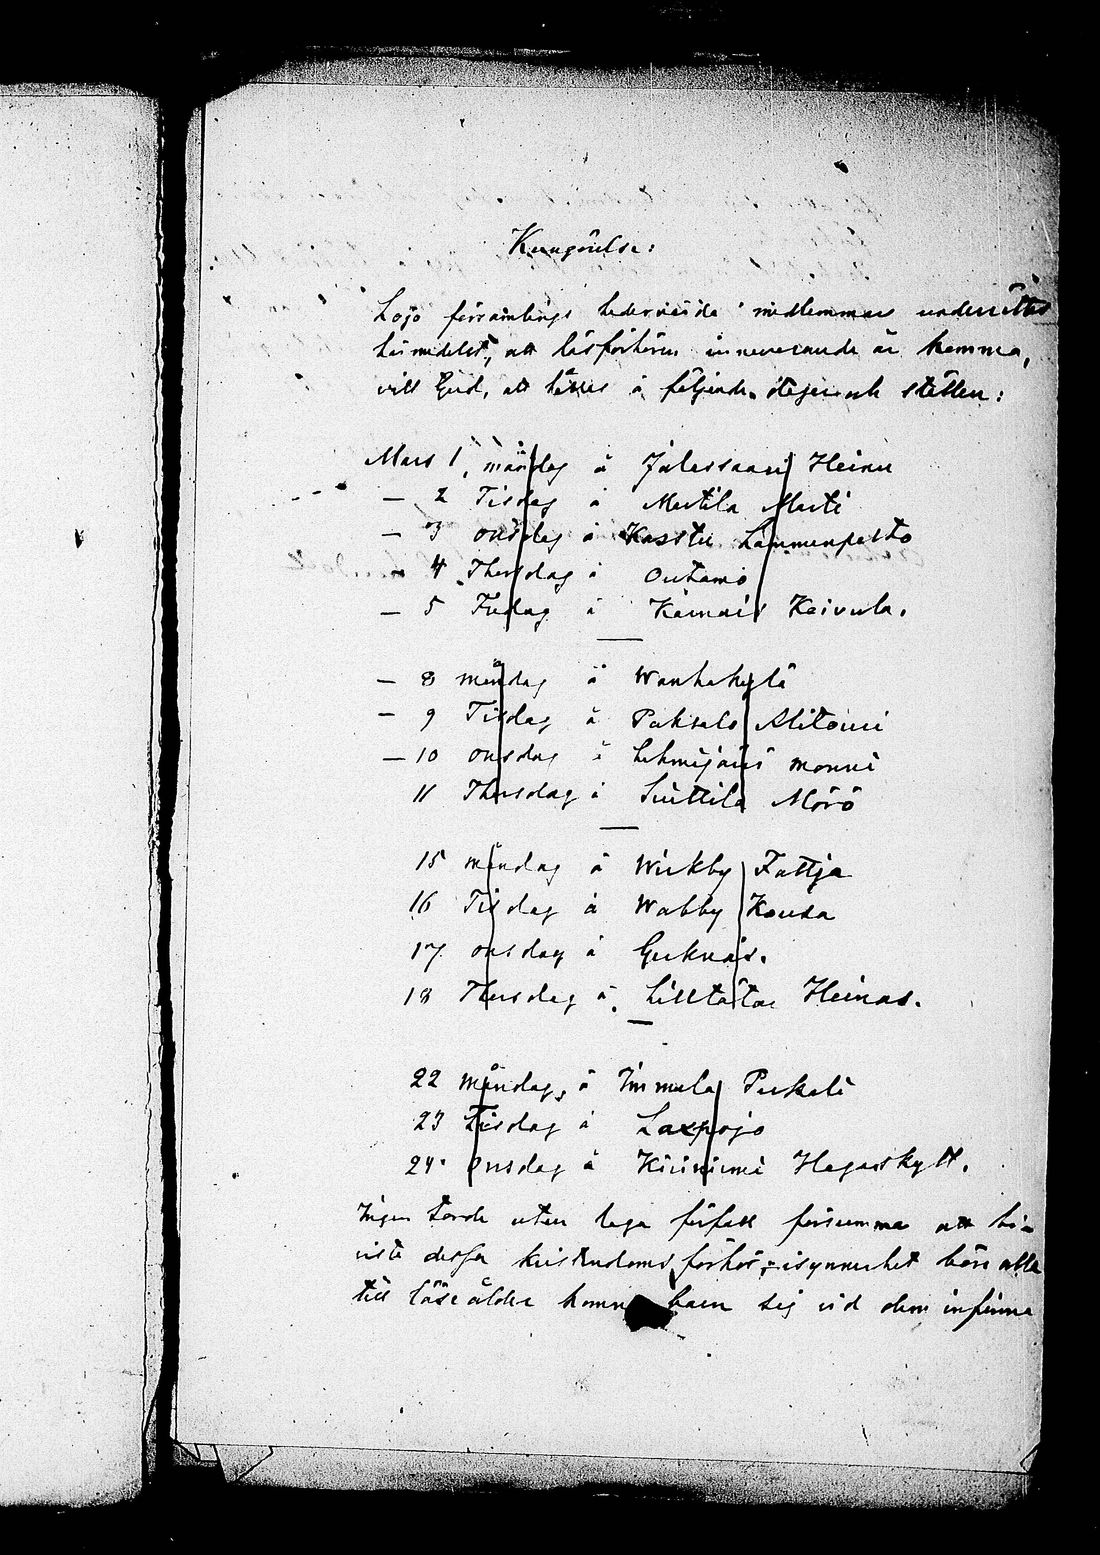 Kungörelse:
Lojo församlings hedervärda medlemmar underrättas
härmedelst, att läsförhören innevarande år komma,
vill Gud, att hållas å följande dagar och ställen:
Mars 1, måndag å Jalassaari Heinu
— 2 Tisdag å Martila Marti
— 3 onsdag å Lammenpelto
— 4 Thorsdag å Outamo
— 5 Fredag å Koivula.
— 8 måndag å Wanhakylä
— 9 Tisdag å Paksalo Alitouri
— 10 onsdag å Lehmijärvi monni
11 Thorsdag å Mörö
15 måndag å Wirkby Fattja
16 Tisdag å Wabby Kouda
17 onsdag å Gerknäs.
18 Thorsdag å Lilltötar Heinas.
22 måndag, å Immula Perkale
23 Tisdag å Laxpojo
24 onsdag å Kirkniemi Hagarskytt.
Ingen torde utan laga förfall försumma att bi-
vista dessa kristendoms förhör, isynnerhet böra alla
till läse ålder komna barn sig vid dem infinna